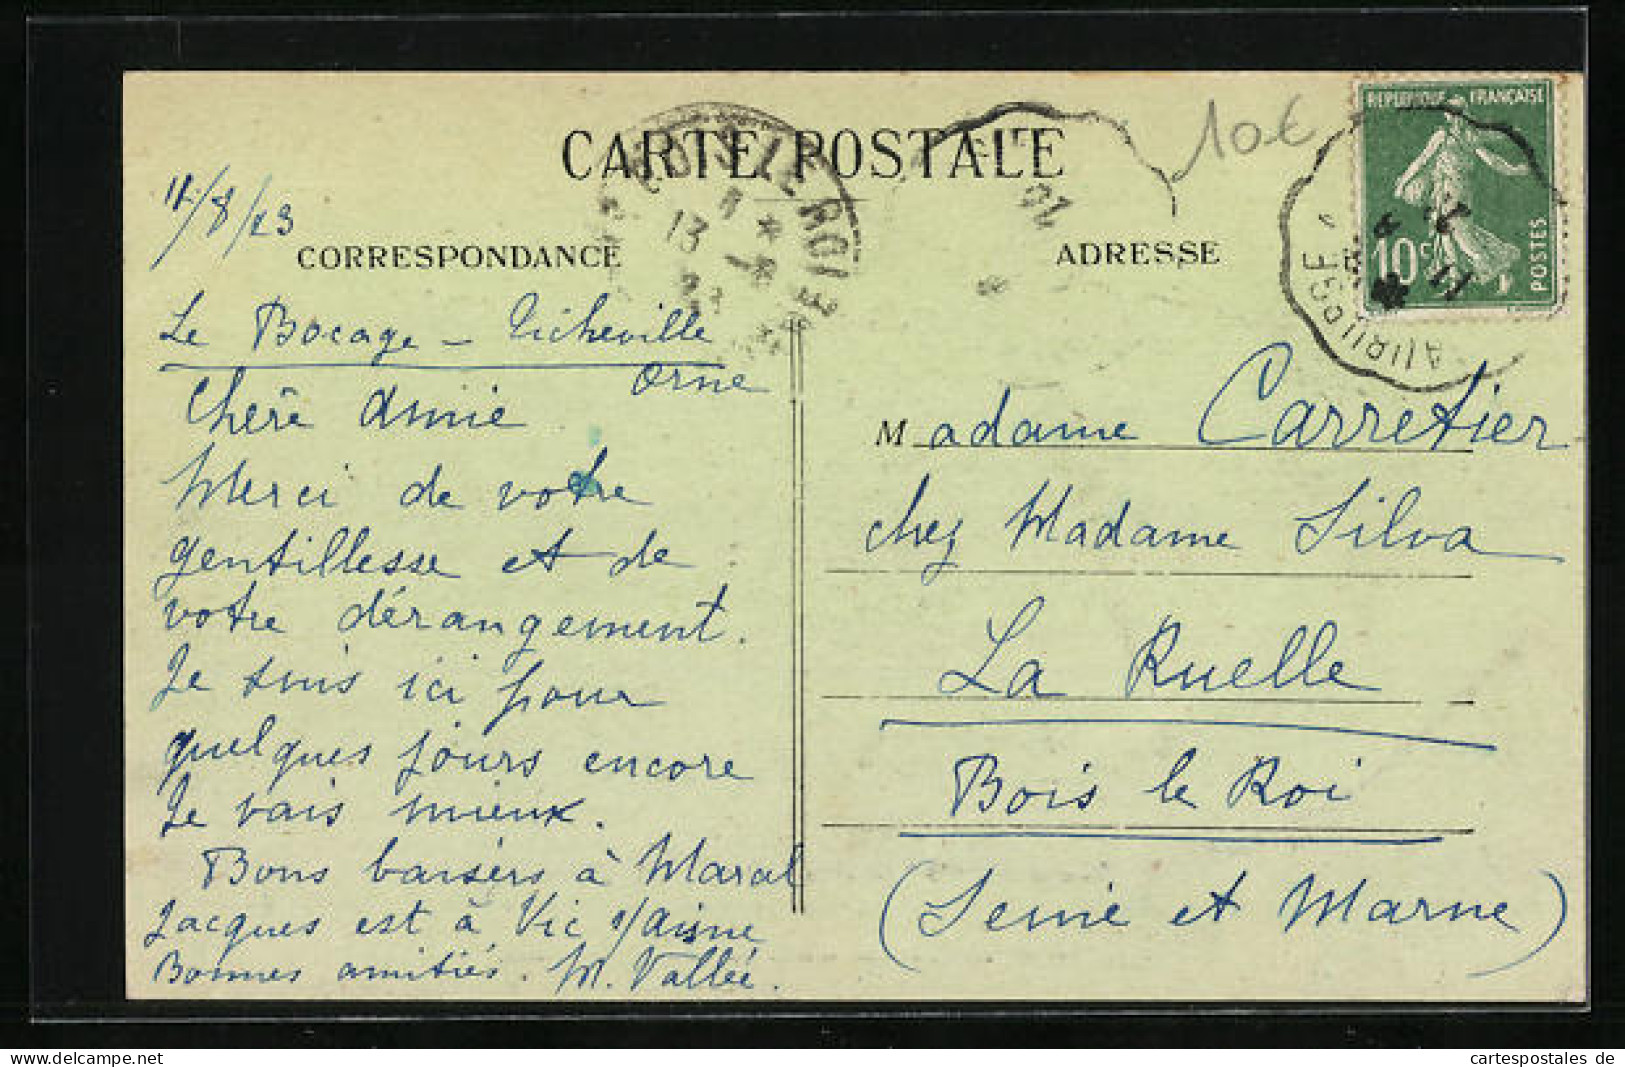 CARTE POSTALE
11/8/23
CORRESPONDANCE
Le Bocage – Ticheville
Orne
Chère Amie
Merci de votre
gentillesse et de
votre dérangement.
Je suis ici pour
quelques jours encore
Je vais mieux.
Bons baisers à
Jacques est à Vic s/Aisne
Bonnes amitiés. M. Vallée.
10€
ADRESSE
REPUBLIQUE FRANÇAISE
10c
POSTES
BOIS LE ROI
13
Madame Carretier
chez Madame Silva
La Ruelle
Bois le Roi
(Seine et Marne)
cartespostales de